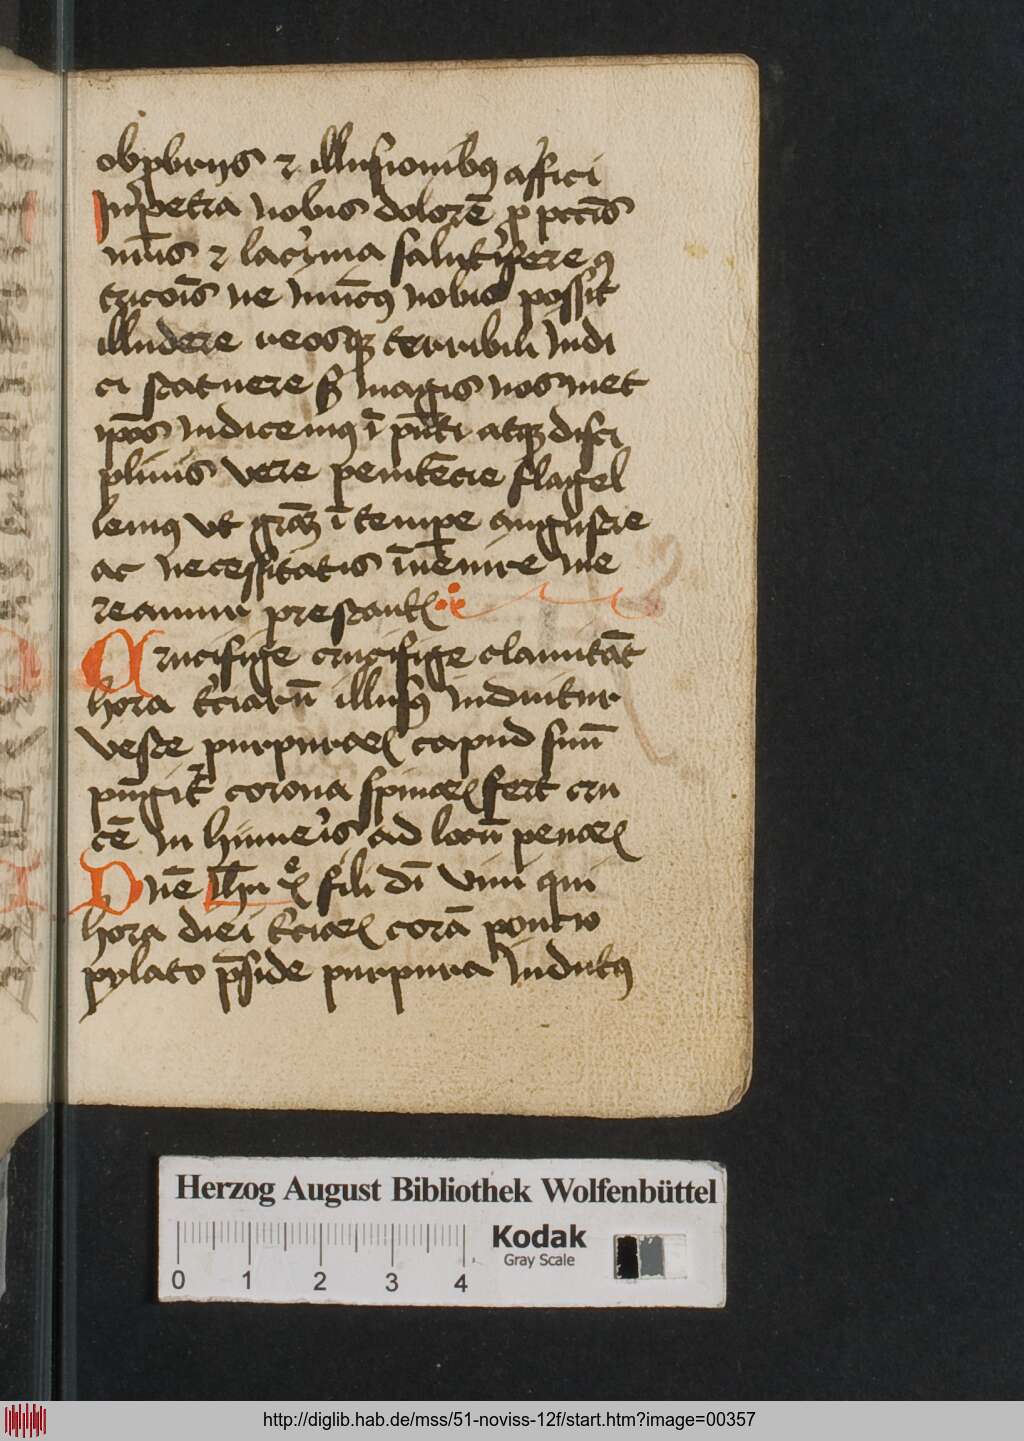 obpbrijs et illusionibꝯ affici
Impetra nobis dolorē ꝓ pctīs
nr̄is et lacrīma salutifere ꝯ
tricōis ne inimicꝯ nobis possit
illudere reosqꝫ terribili Judi
ci statuere sꝫ magis nos met
ipōs iudicemꝯ ī pn̄ti atqꝫ disci
plinis vere penitēcie flagel
lemꝯ vt grāꝫ ī tempe angustie
ac necessitatis īuēnire me
reamur prestantē
Crucifige crucifige clamitāt
hora tciarū illusꝯ induitur
veste purpurea capud suū
pūgit̄ corona spinea fert cru
cē in humeris ad locū pene
Dn̄e ih̄u xᵉ fili dī viui qui
hora diei tcia corā poncio
pylato p̄side purpura indutꝯ
Herzog August Bibliothek Wolfenbüttel
Kodak
Gray Scale
0 1 2 3 4
http://diglib.hab.de/mss/51-noviss-12f/start.htm?image=00357